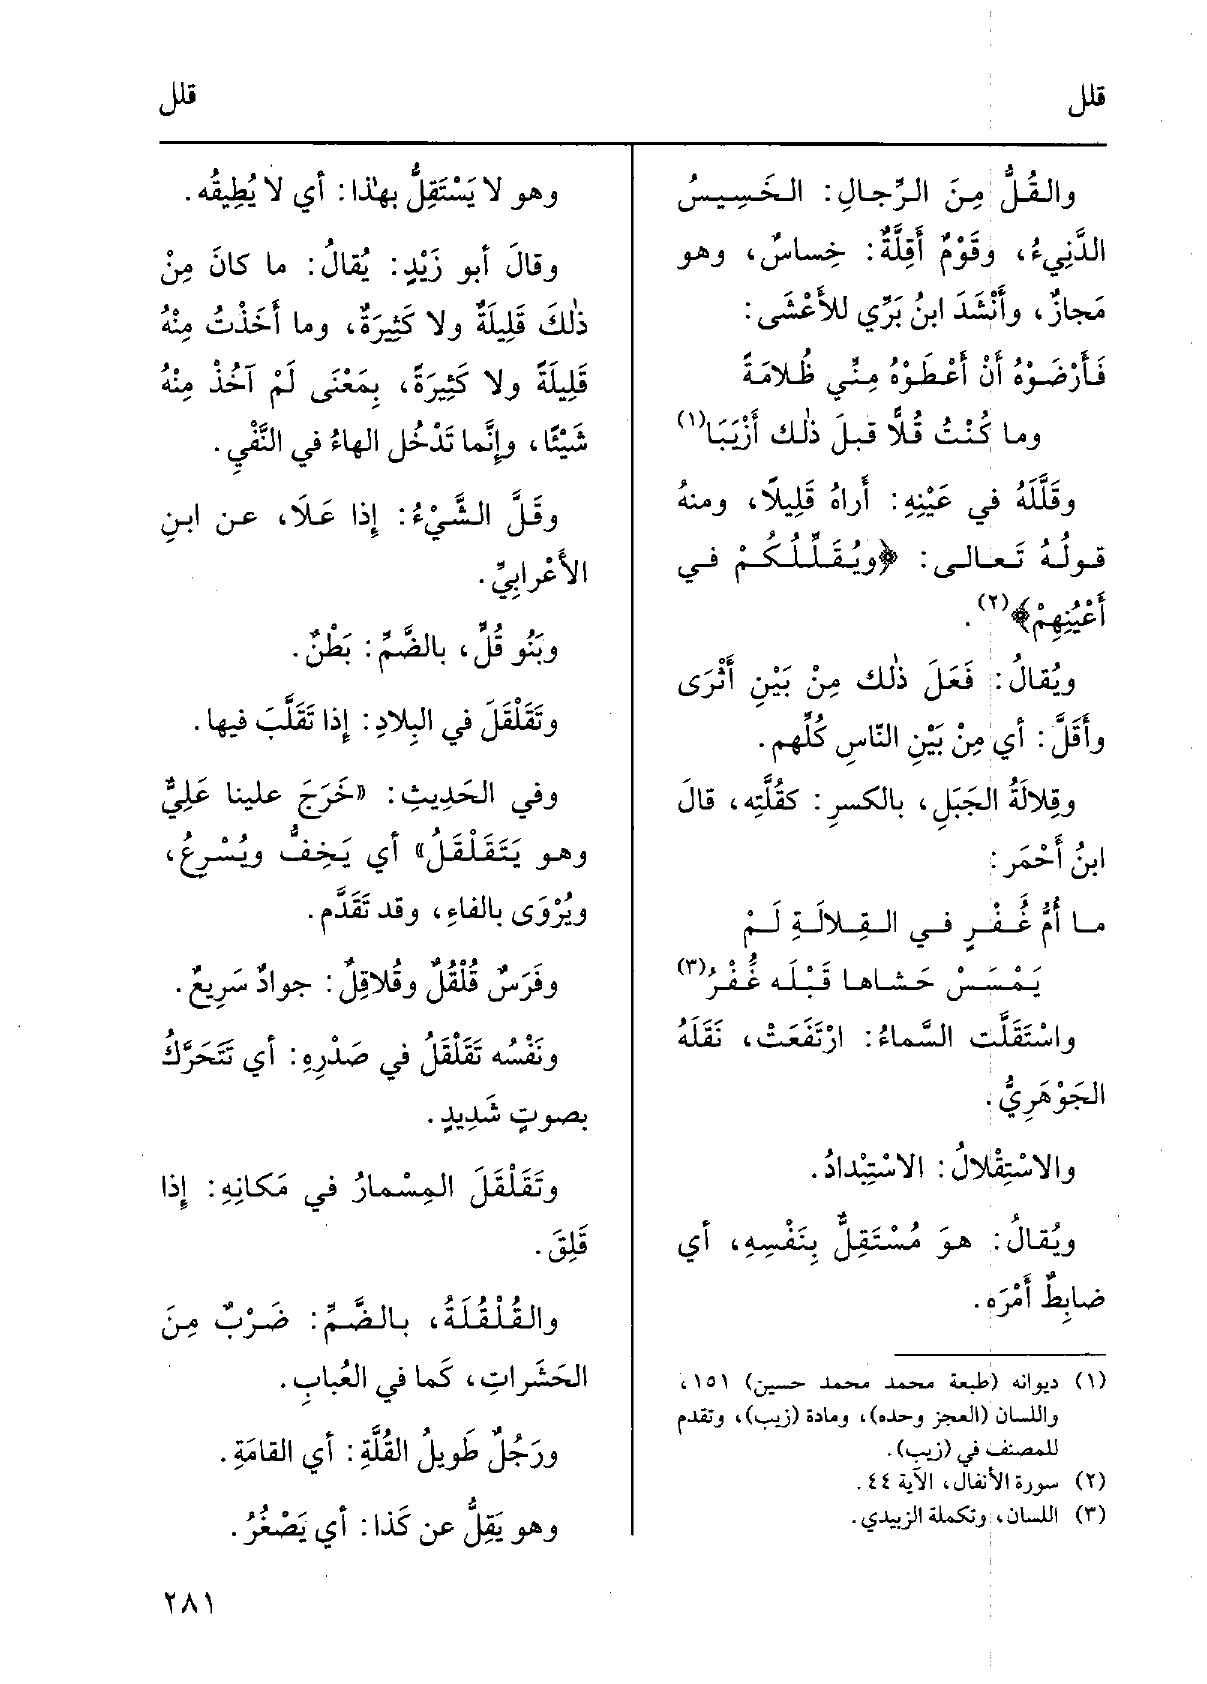 قلل
قلل
والقُلُّ مِنَ الرِّجالِ: الخَسِيسُ
الدَّنِيءُ، وقَوْمٌ أَقِلَّةٌ: خِساسٌ، وهو
مَجازٌ، وأَنْشَدَ ابنُ بَرِّي للأَعْشَى:
فَأَرْضَوْهُ أَنْ أَعْطَوْهُ مِنِّي ظُلامَةً
وما كُنْتُ قُلًّا قبلَ ذٰلك أَزْيَبَا(١)
وقَلَّلَهُ في عَيْنِهِ: أَراهُ قَلِيلًا، ومنهُ
قولُهُ تَعالى: ﴿ويُقَلِّلُكُمْ في
أَعْيُنِهِمْ﴾(٢).
ويُقالُ: فَعَلَ ذٰلك مِنْ بَيْنِ أَثْرَى
وأَقَلَّ: أي مِنْ بَيْنِ النّاسِ كُلِّهم.
وقِلالَةُ الجَبَلِ، بالكسرِ: كقُلَّتِه، قالَ
ابنُ أَحْمَر:
ما أُمُّ غُفْرٍ في القِلالَةِ لَمْ
يَمْسَسْ حَشاها قَبْلَه غُفْرُ(٣)
واسْتَقَلَّت السَّماءُ: ارْتَفَعَتْ، نَقَلَهُ
الجَوْهَرِيُّ.
والاسْتِقْلالُ: الاسْتِبْدادُ.
ويُقالُ: هوَ مُسْتَقِلٌّ بِنَفْسِهِ، أي
ضابِطٌ أَمْرَه.
(١) ديوانه (طبعة محمد محمد حسين) ١٥١،
واللسان (العجز وحده)، ومادة (زيب)، وتقدم
للمصنف في (زيب).
(٢) سورة الأنفال، الآية ٤٤.
(٣) اللسان، وتكملة الزبيدي.
وهو لا يَسْتَقِلُّ بهٰذا: أي لا يُطِيقُه.
وقالَ أبو زَيْدٍ: يُقالُ: ما كانَ مِنْ
ذٰلكَ قَلِيلَةٌ ولا كَثِيرَةٌ، وما أَخَذْتُ مِنْهُ
قَلِيلَةً ولا كَثِيرَةً، بِمَعْنَى لَمْ آخُذْ مِنْهُ
شَيْئًا، وإِنَّما تَدْخُل الهاءُ في النَّفْيِ.
وقَلَّ الشَّيْءُ: إِذا عَلَا، عن ابنِ
الأَعْرابِيِّ.
وبَنُو قُلٍّ، بالضَّمِّ: بَطْنٌ.
وتَقَلْقَلَ في البِلادِ: إِذا تَقَلَّبَ فيها.
وفي الحَدِيثِ: «خَرَجَ علينا عَلِيٌّ
وهو يَتَقَلْقَلُ» أي يَخِفُّ ويُسْرِعُ،
ويُرْوَى بالفاءِ، وقد تَقَدَّم.
وفَرَسٌ قُلْقُلٌ وقُلاقِلٌ: جوادٌ سَرِيعٌ.
ونَفْسُه تَقَلْقَلُ في صَدْرِهِ: أي تَتَحَرَّكُ
بصوتٍ شَدِيدٍ.
وتَقَلْقَلَ المِسْمارُ في مَكانِهِ: إِذا
قَلِقَ.
والقُلْقُلَةُ، بالضَّمِّ: ضَرْبٌ مِنَ
الحَشَراتِ، كَما في العُبابِ.
ورَجُلٌ طَوِيلُ القُلَّةِ: أي القامَةِ.
وهو يَقِلُّ عن كَذا: أي يَصْغُرُ.
٢٨١